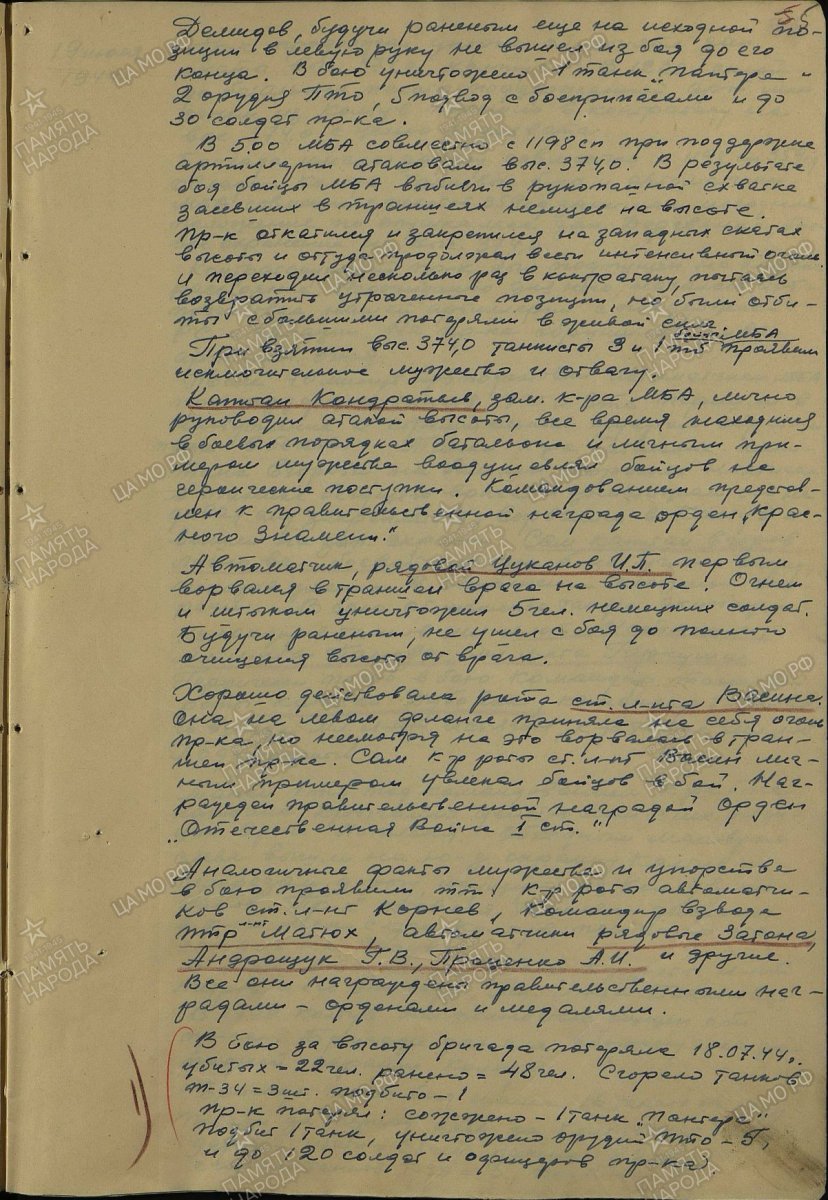 55
Демидов, будучи раненым еще на исходной по-
зиции в левую руку не вышел из боя до его
конца. В бою уничтожено 1 танк „Пантера"
2 орудия ПТО, 5 подвод с боеприпасами и до
30 солдат пр-ка.
В 5.00 МБА совместно с 1198 сп при поддержке
артиллерии атаковали выс. 374,0. В результате
боя бойцы МБА выбили в рукопашной схватке
засевших в траншеях немцев на высоте.
Пр-к откатился и закрепился на западных скатах
высоты и оттуда продолжал вести интенсивный огонь
и переходил несколько раз в контратаку, пытаясь
возвратить утраченные позиции, но были отби-
ты с большими потерями в живой силе.
бойцы МБА
При взятии выс. 374,0 танкисты 3 и 1 тб проявили
исключительное мужество и отвагу.
Капитан Кондратьев, зам. к-ра МБА, лично
руководил атакой высоты, все время находился
в боевых порядках батальона и личным при-
мером мужества воодушевлял бойцов на
героические поступки. Командованием представ-
лен к правительственной награде орден „Крас-
ного Знамени."
Автоматчик, рядовой Цуканов И.П. первым
ворвался в траншеи врага на высоте. Огнем
и штыком уничтожил 5 чел. немецких солдат.
Будучи раненым, не ушел с боя до полного
очищения высоты от врага.
Хорошо действовала рота ст. л-нта Васина.
Она на левом фланге приняла на себя огонь
пр-ка, но несмотря на это ворвалась в тран-
шеи пр-ка. Сам к-р роты ст. л-нт Васин лич-
ным примером увлекал бойцов в бой. Наг-
ражден правительственной наградой орден
„Отечественная Война I ст."
Аналогичные факты мужества и упорства
в бою проявили тт. к-р роты автоматчи-
ков ст. л-нт Корнев, командир взвода
ПТР л-нт Матюх, автоматчики рядовые Затона,
Андрощук Г.В., Проценко А.И. и другие.
Все они награждены правительственными наг-
радами – орденами и медалями.
В бою за высоту бригада потеряла 18.07.44г.
убитых = 22 чел. ранено = 48 чел. Сгорело танков
Т-34 = 3 шт. подбито – 1
Пр-к потерял: сожжено – 1 танк „Пантера"
подбит 1 танк, уничтожено орудий ПТО – 5,
и до 120 солдат и офицеров пр-ка.
ЦА МО РФ
1941-1945
ПАМЯТЬ
НАРОДА